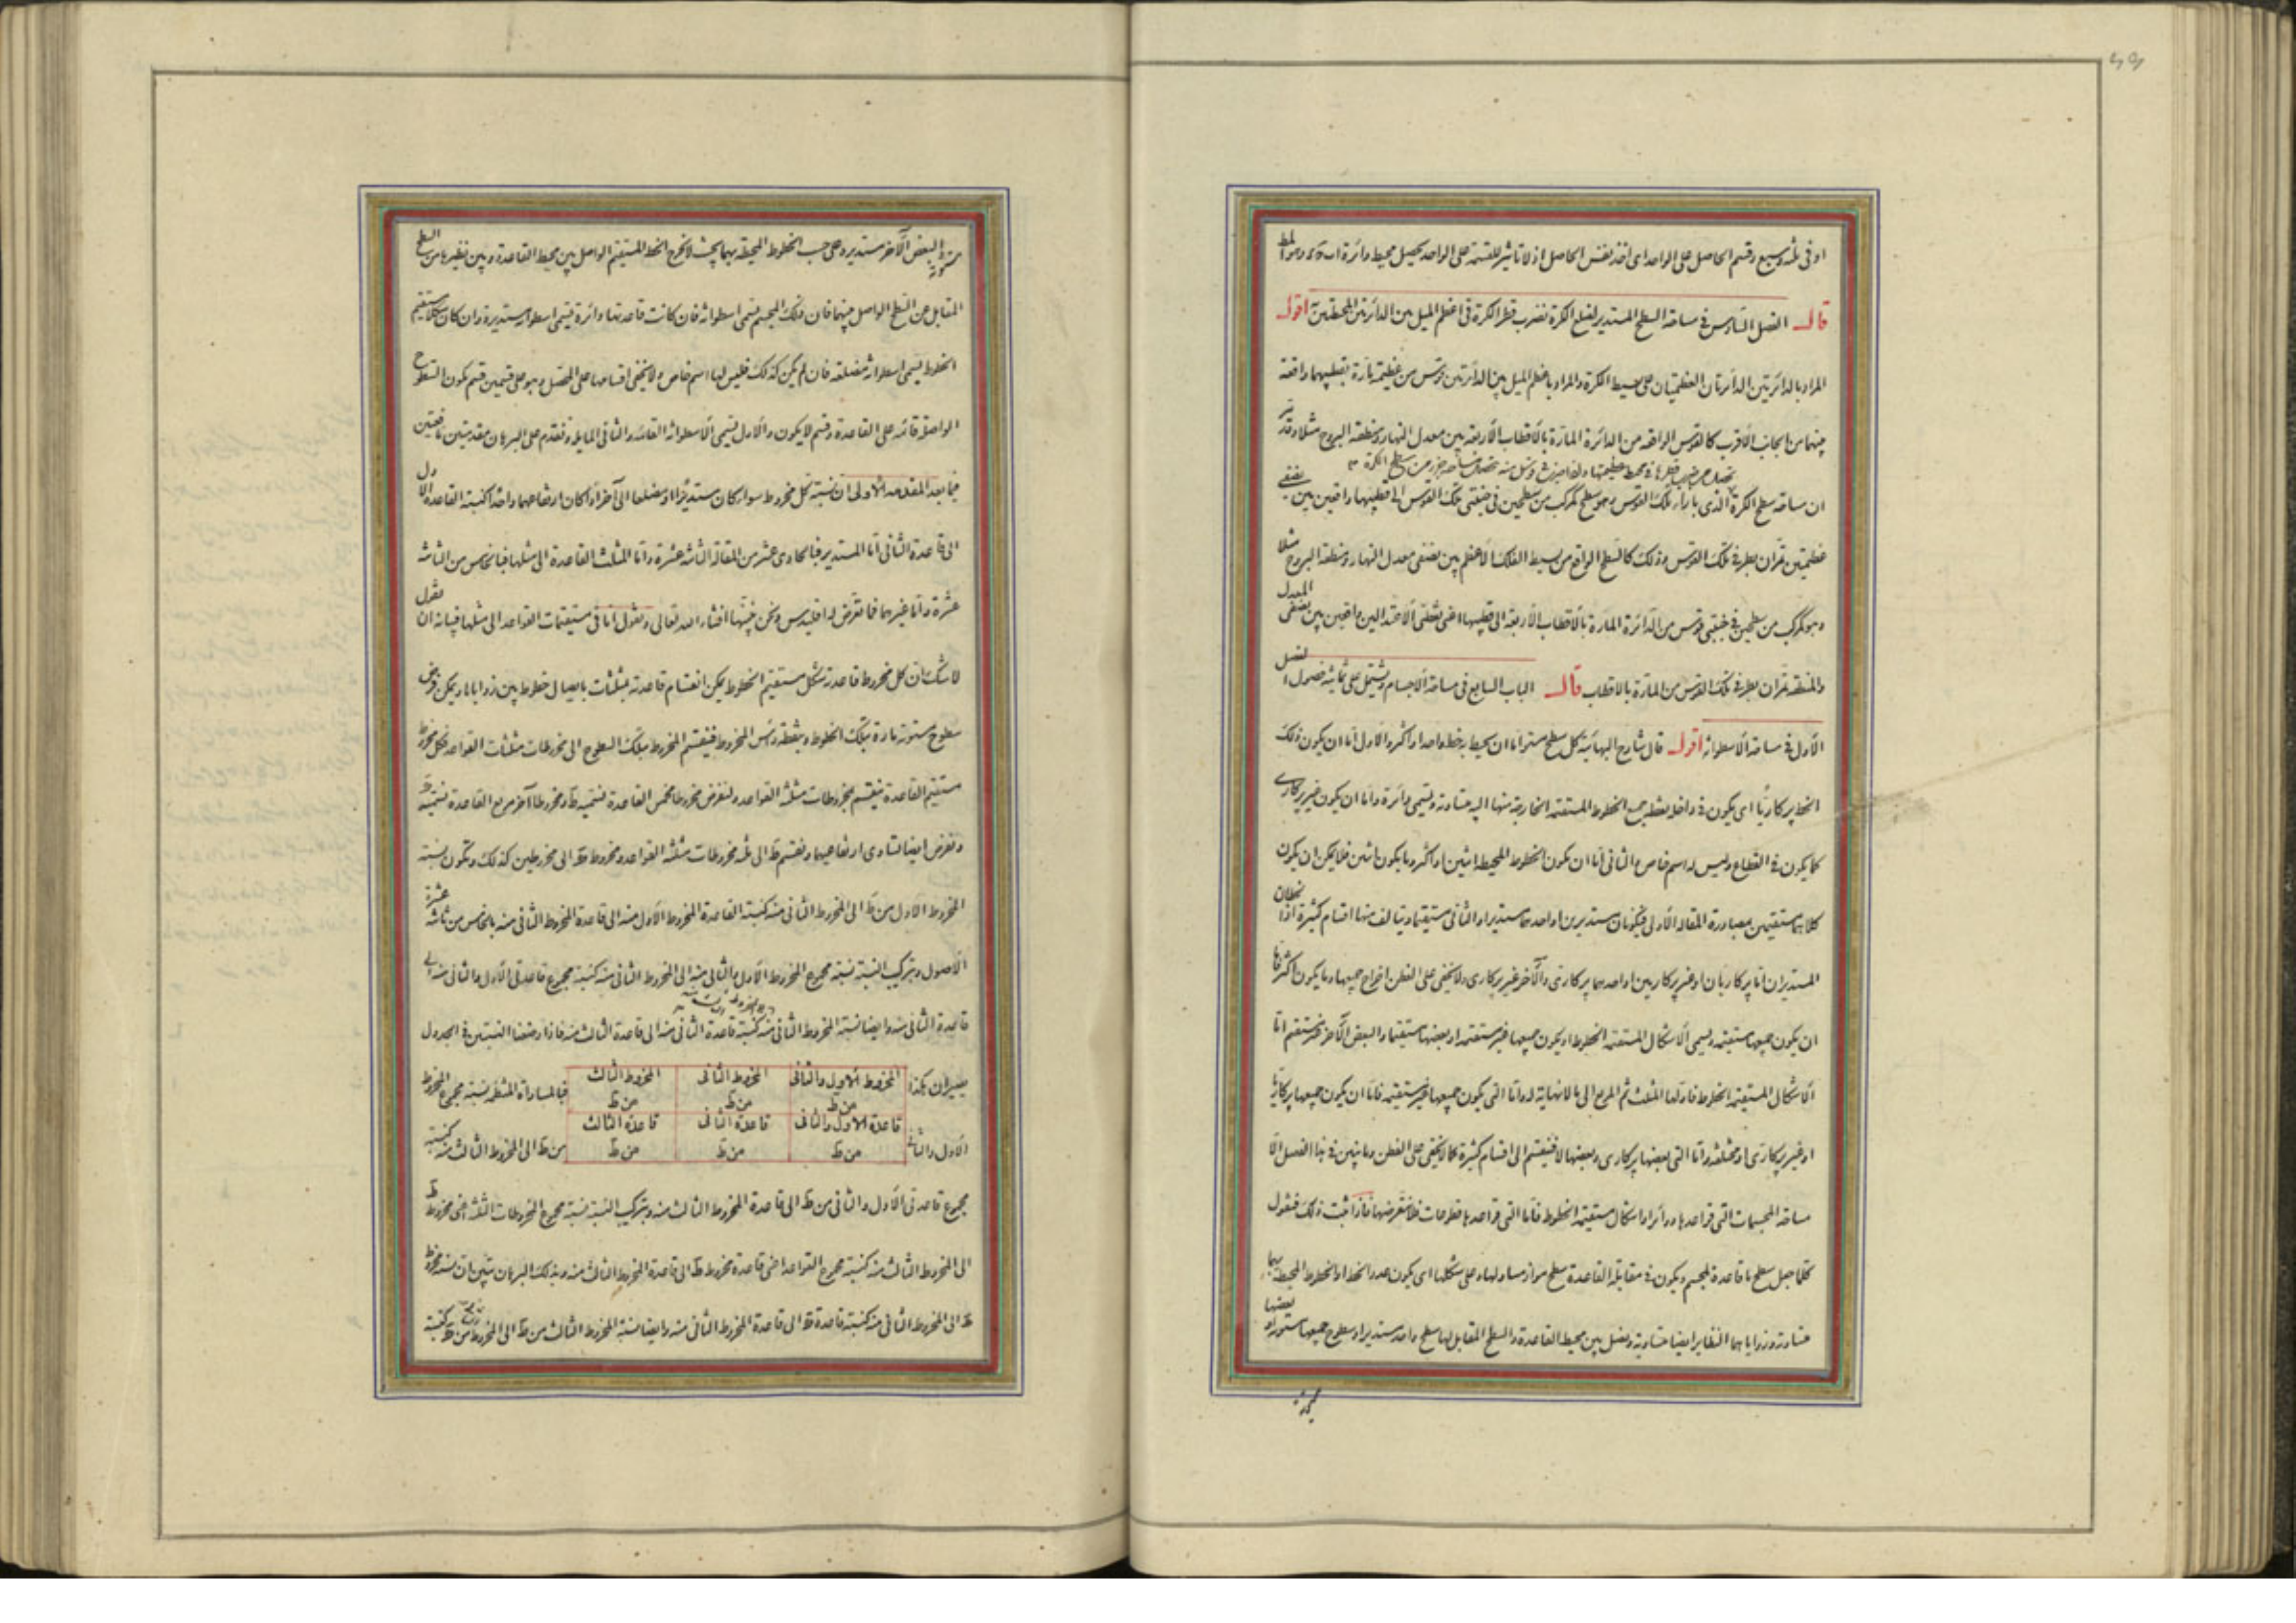 او فى ثلثة وسبع وقسم الحاصل على الواحد اى اخذ نفس الحاصل اذ لا تاثير للقسمة على الواحد يحصل محيط دائرة
قال الفصل السادس فى مساحة السطح المستدير لضلع الكرة نضرب قطر الكرة فى اعظم الميل بين الدائرتين المحيطتين اقول
المراد بالدائرتين الدائرتان العظيمتان على بسيط الكرة والمراد باعظم الميل بين الدائرتين قوس من عظيمة مارة بقطبيهما واقعة
بينهما من الجانب الاقرب كالقوس الواقعة من الدائرة المارة بالاقطاب الاربعة بين معدل النهار ومنطقة البروج مثلا
ان مساحة سطح الكرة الذى بازاء تلك القوس وهو سطح مركب من سطحين فى جنبتى تلك القوس الى قطبيهما واقعين بين نصفى
عظيمتين تمران بطرفى تلك القوس وذلك كالسطح الواقع من بسيط الفلك الاعظم بين نصفى معدل النهار ومنطقة البروج مثلا
وهو مركب من سطحين فى جنبتى قوس من الدائرة المارة بالاقطاب الاربعة الى قطبيهما اعنى نقطتى الاعتدالين واقعين بين نصفى المعدل
والمنطقة تمران بطرفى تلك القوس من المارة بالاقطاب قال الباب السابع فى مساحة الاجسام ويشتمل على ثمانية فصول الفصل
الاول فى مساحة الاسطوانة اقول قال شارح البهائية كل سطح مستو اما ان يحيط به خط واحد او اكثر والاول اما ان يكون ذلك
الخط پركاريا اى يكون فى داخله نقطة جميع الخطوط المستقيمة الخارجة منها اليه متساوية ويسمى دائرة واما ان يكون غير پركارى
كما يكون فى القطاع وليس له اسم خاص والثانى اما ان يكون الخطوط المحيطة اثنين او اكثر وما يكون اثنين فلا يمكن ان يكون
كلاهما مستقيمين بمصادرة المقالة الاولى فيكونان مستديرين او احدهما مستديرا والثانى مستقيما ويتالف منها اقسام كثيرة اذ الخطان
المستديران اما پركاريان او غير پركاريين او احدهما پركارى والآخر غير پركارى ولا يخفى على الفطن اخراج جميعها وما يكون اكثر فاما
ان يكون جميعها مستقيمة ويسمى الاشكال المستقيمة الخطوط او يكون جميعها غير مستقيمة او بعضها مستقيما والبعض الآخر غير مستقيم اما
الاشكال المستقيمة الخطوط فاولها المثلث ثم المربع الى ما لا نهاية له واما التى يكون جميعها غير مستقيمة فاما ان يكون جميعها پركاريا
او غير پركارى او مختلفة واما التى بعضها پركارى وبعضها فينقسم الى اقسام كثيرة كما لا يخفى على الفطن وما نبين فى هذا الفصل الا
مساحة المجسمات التى قواعدها دوائر او اشكال مستقيمة الخطوط فاما التى قواعدها قطوعات فلا نتعرضها فاذا ثبت ذلك فنقول
كلما جعل سطح ما قاعدة لمجسم ويكون فى مقابلة القاعدة سطح مواز مساو لها وعلى شكلها اى يكون عدد الخطا او الخطوط المحيطة بهما
متساوية وزواياهما النظاير ايضا متساوية ويصل بين محيط القاعدة والسطح المقابل لها سطح واحد مستدير او سطوح جميعها مستوية او بعضها
مستوية والبعض الآخر مستدير وعلى حسب الخطوط المحيطة بهما بحيث لا يخرج الخط المستقيم الواصل بين محيط القاعدة وبين نظيرها من السطح
المقابل عن السطح الواصل بينهما فان ذلك المجسم يسمى اسطوانة فان كانت قاعدتها دائرة يسمى اسطوانة مستديرة وان كان شكلا مستقيم
الخطوط يسمى اسطوانة مضلعة فان لم يكن كذلك فليس لها اسم خاص ولا يخفى اقسامها على المحصل وهو على قسمين قسم يكون السطوح
الواصلة قائمة على القاعدة وقسم لا يكون والاول يسمى الاسطوانة القائمة والثانى المايلة ونقدم على البرهان مقدمتين نافعتين
فيما بعد المقدمة الاولى ان نسبة كل مخروط سواء كان مستديرا او مضلعا الى آخر اذا كان ارتفاعهما واحدا كنسبة القاعدة الاول
الى قاعدة الثانى اما المستدير فبالحادى عشر من المقالة الثانية عشرة واما المثلث القاعدة الى مثلها فبالخامس من الثانية
عشرة واما غيرهما فما تعرض له اقليدس ونحن نبينها انشاء الله تعالى ونقول اما فى مستقيمات القواعد الى مثلها فبيانه ان نقول
لا شك ان كل مخروط قاعدته شكل مستقيم الخطوط يمكن انقسام قاعدته بمثلثات بايصال خطوط بين زواياها ويمكن فرض
سطوح مستوية مارة بتلك الخطوط وبنقطة رأس المخروط فينقسم المخروط بتلك السطوح الى مخروطات مثلثات القواعد فكل مخروط
مستقيم القاعدة ينقسم بمخروطات مثلثة القواعد ولنفرض مخروطا مخمس القاعدة نسميه ط ومخروطا آخر مربع القاعدة نسميه
ونفرض ايضا تساوى ارتفاعيهما ونقسم ط الى ثلثة مخروطات مثلثة القواعد ومخروط الى مخروطين كذلك ويكون نسبة
المخروط الاول من ط الى المخروط الثانى منه كنسبة القاعدة المخروط الاول منه الى قاعدة المخروط الثانى منه بالخامس من ثانية عشرة
الاصول وبتركيب النسبة نسبة مجموع المخروط الاول والثانى منه الى المخروط الثانى منه كنسبة مجموع قاعدتى الاول والثانى منه الى
قاعدة الثانى منه وايضا نسبة المخروط الثانى منه كنسبة قاعدة الثانى منه الى قاعدة الثالث منه فاذا وضعنا النسبتين فى الجدول
يصيران هكذا المخروط الاول والثانى من ط المخروط الثانى من ط المخروط الثالث من ط فبالمساواة المنتظمة نسبة مجموع المخروط
الاول والثانى قاعدة الاول والثانى من ط قاعدة الثانى من ط قاعدة الثالث من ط من ط الى المخروط الثالث منه كنسبة
مجموع قاعدتى الاول والثانى من ط الى قاعدة المخروط الثالث منه وبتركيب النسبة نسبة مجموع المخروطات الثلثة اعنى مخروط ط
الى المخروط الثالث منه كنسبة مجموع القواعد اعنى قاعدة مخروط ط الى قاعدة المخروط الثالث منه وبذلك البرهان تبين ان نسبة مخروط
الى المخروط الثانى منه كنسبة قاعدة الى قاعدة المخروط الثانى منه وايضا نسبة المخروط الثالث من ط الى المخروط من كنسبة